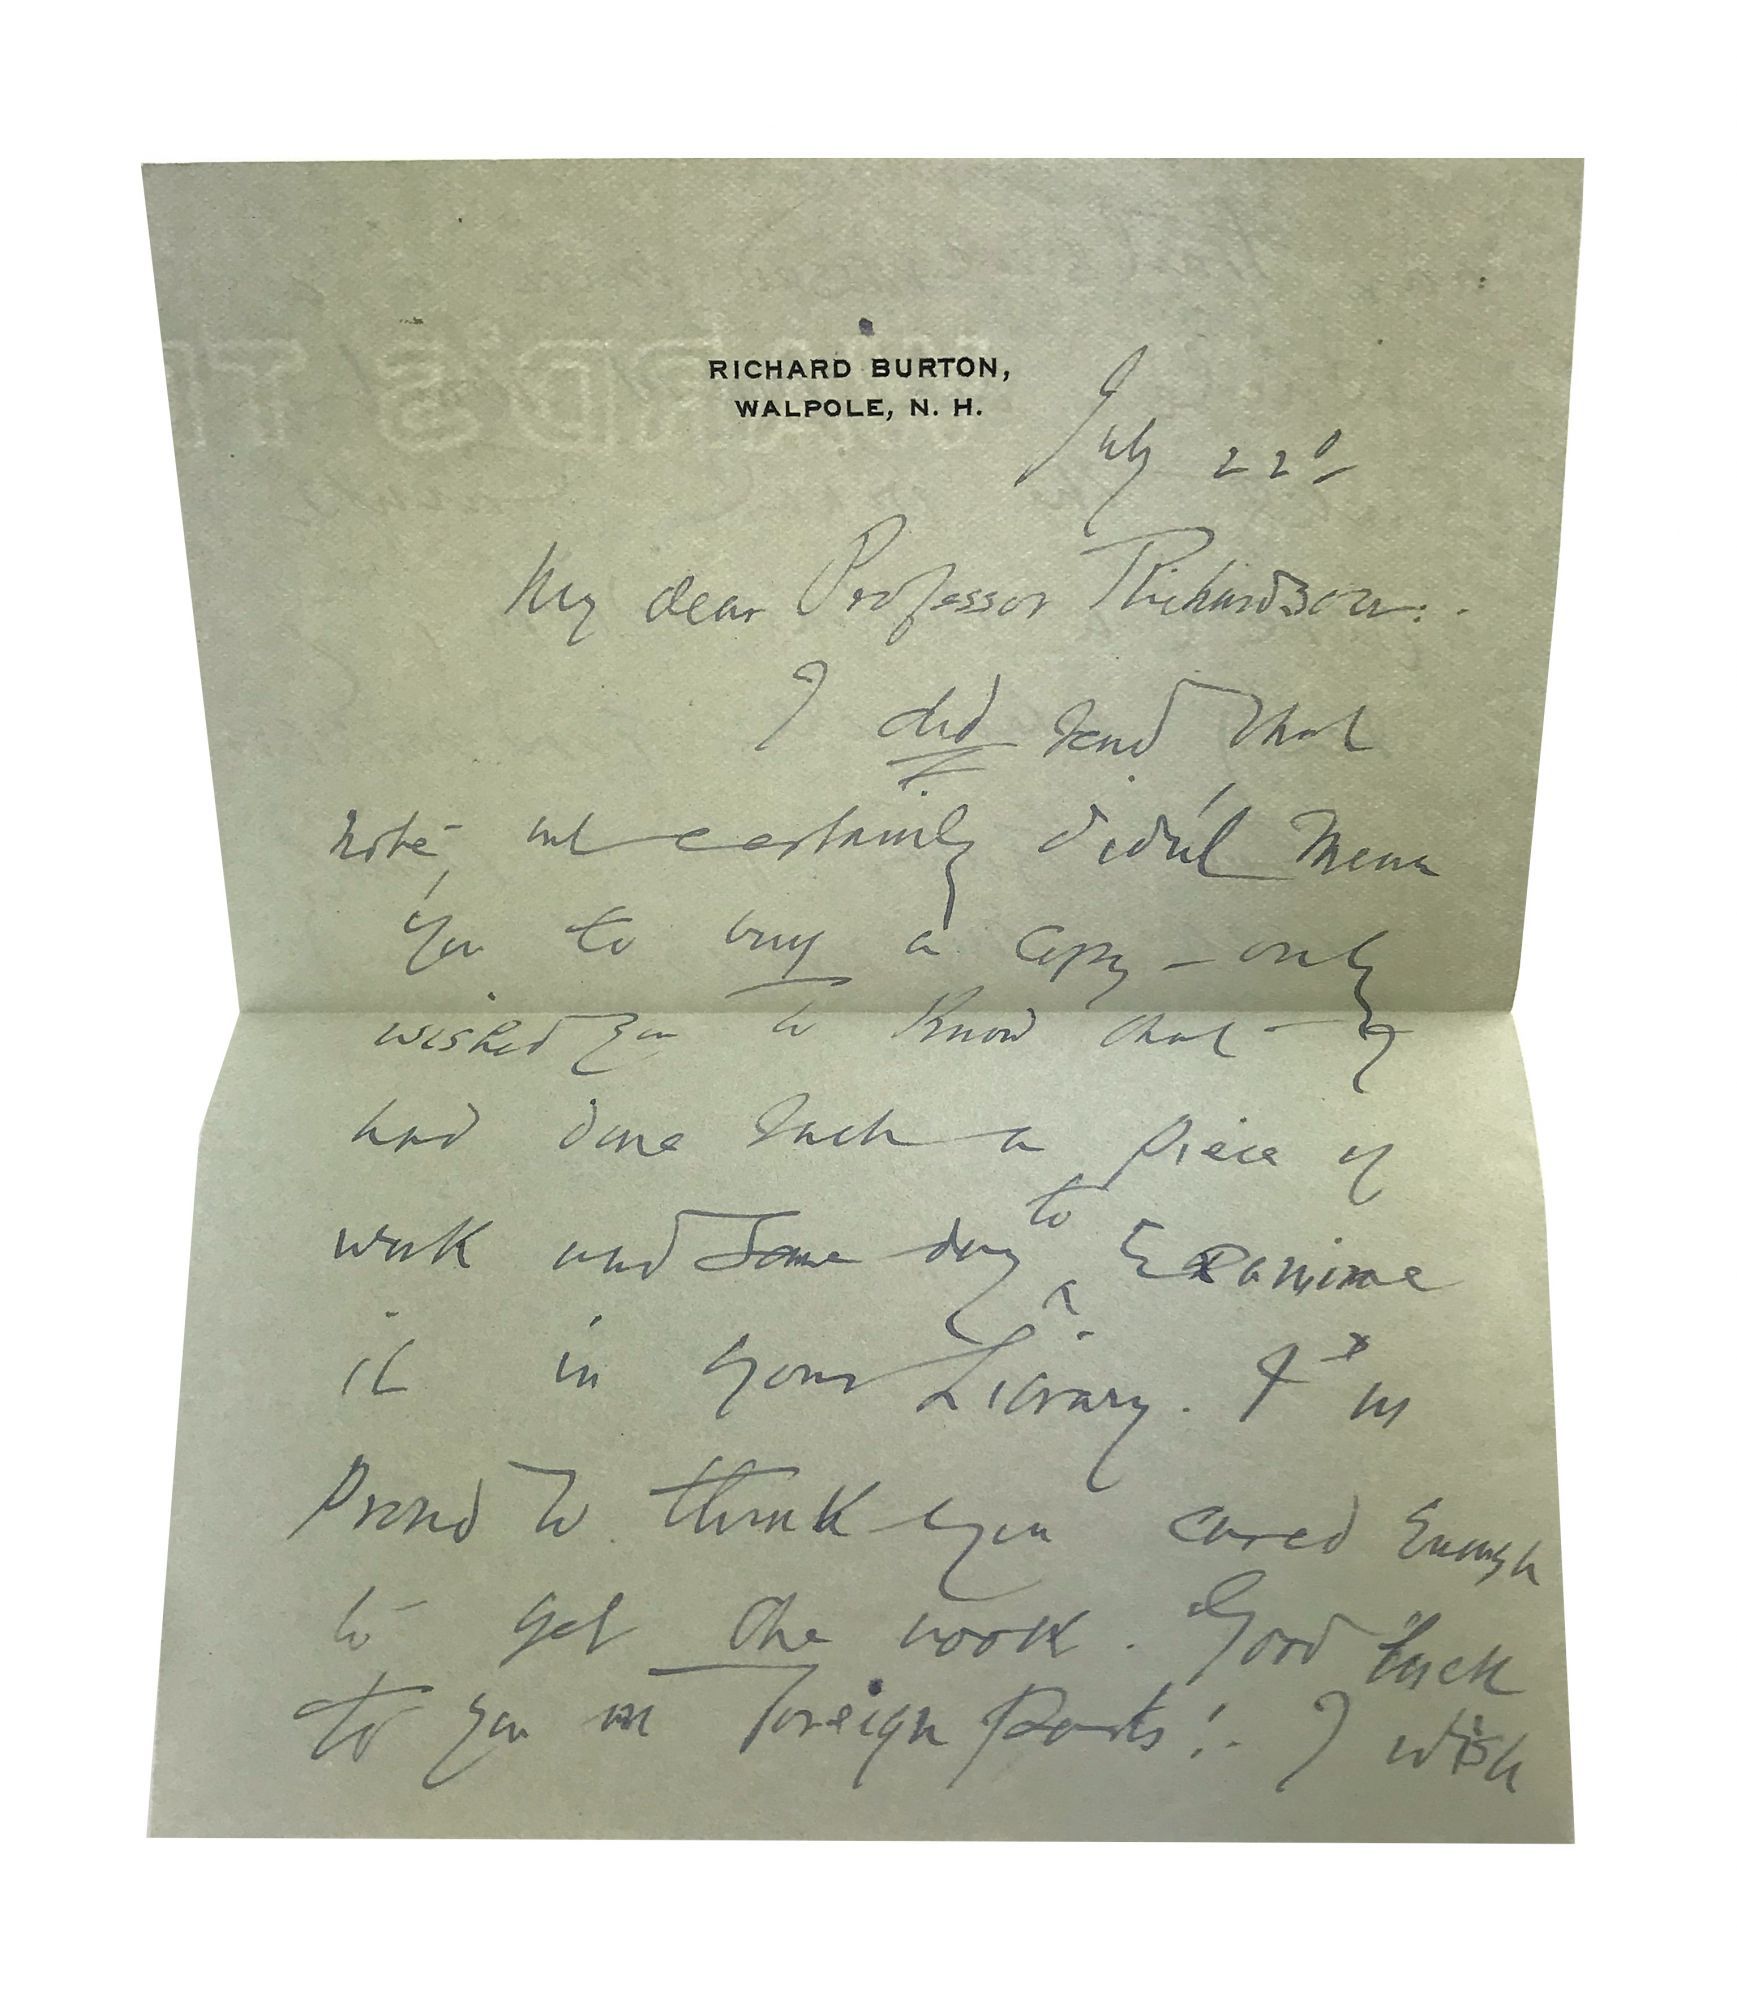 RICHARD BURTON,
WALPOLE, N. H.
July 22
My dear Professor Richardson:
I did send that
note, but certainly didn't mean
you to buy a copy - only
wished you to know that I
had done such a piece of
work and some day to examine
it in your Library. I
proud to think you cared enough
to get the book. Good luck
to you in foreign parts! I wish